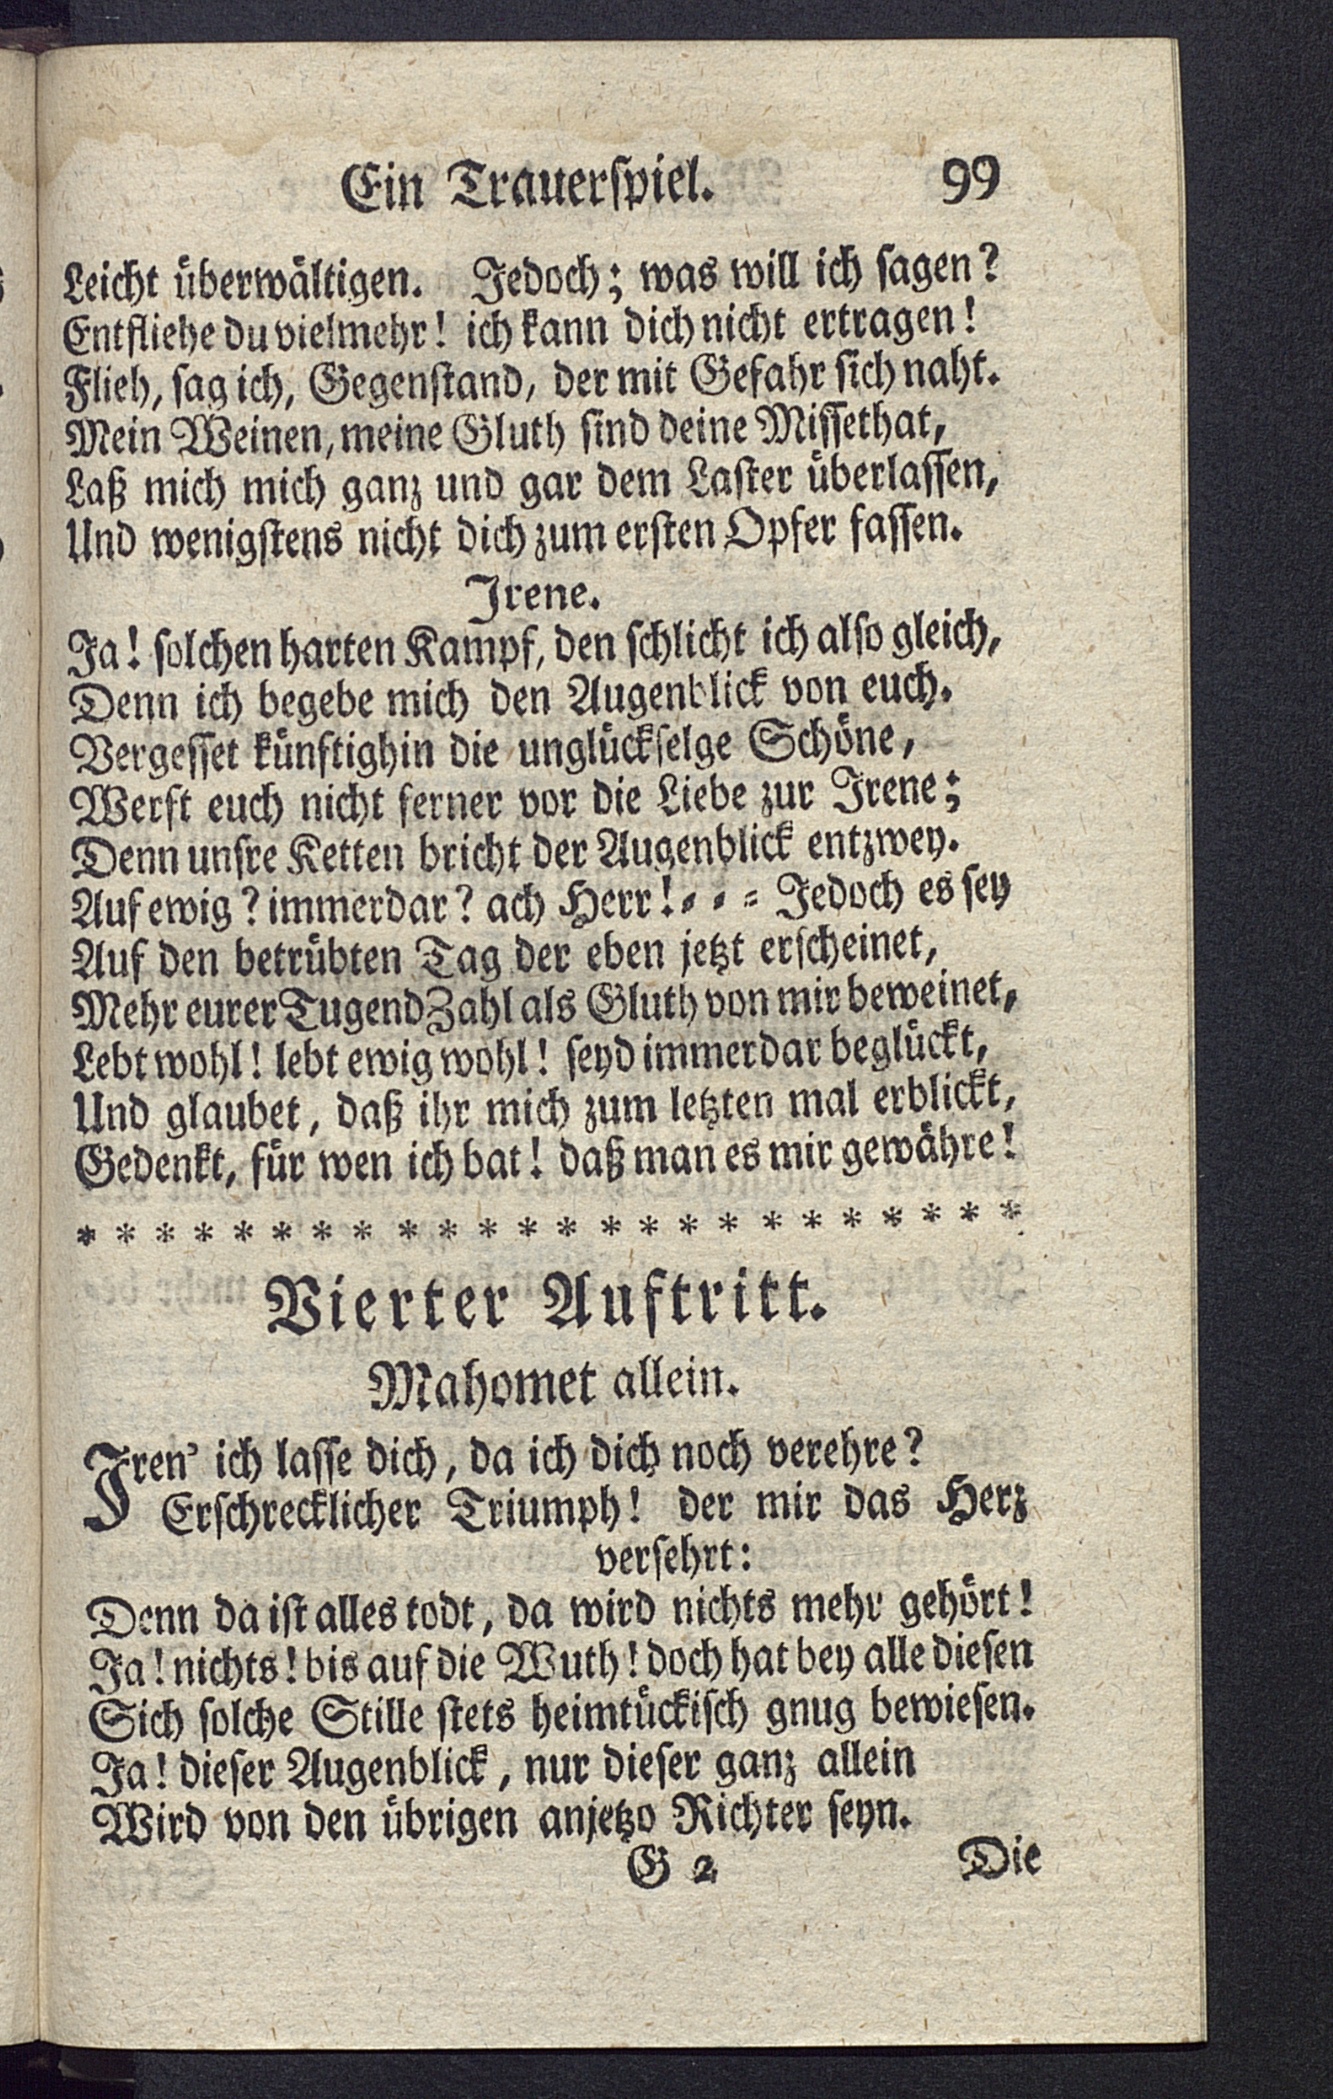 Ein Trauerſpiel. 99
Leicht überwältigen. Jedoch; was will ich ſagen?
Entfliehe du vielmehr! ich kann dich nicht ertragen!
Flieh, ſag ich, Gegenſtand, der mit Gefahr ſich naht.
Mein Weinen, meine Gluth ſind deine Miſſethat,
Laß mich mich ganz und gar dem Laſter überlaſſen,
Und wenigſtens nicht dich zum erſten Opfer faſſen.
Irene.
Ja! ſolchen harten Kampf, den ſchlicht ich alſo gleich,
Denn ich begebe mich den Augenblick von euch.
Vergeſſet künftighin die unglückſelge Schöne,
Werft euch nicht ferner vor die Liebe zur Irene;
Denn unſre Ketten bricht der Augenblick entzwey.
Auf ewig? immerdar? ach Herr! = = = Jedoch es ſey
Auf den betrübten Tag der eben jetzt erſcheinet,
Mehr eurer Tugend Zahl als Gluth von mir beweinet,
Lebt wohl! lebt ewig wohl! ſeyd immerdar beglückt,
Und glaubet, daß ihr mich zum letzten mal erblickt,
Gedenkt, für wen ich bat! daß man es mir gewähre!
* * * * * * * * * * * * * * * * * * * * * * * *
Vierter Auftritt.
Mahomet allein.
Iren' ich laſſe dich, da ich dich noch verehre?
Erſchrecklicher Triumph! der mir das Herz
verſehrt:
Denn da iſt alles todt, da wird nichts mehr gehört!
Ja! nichts! bis auf die Wuth! doch hat bey alle dieſen
Sich ſolche Stille ſtets heimtückiſch gnug bewieſen.
Ja! dieſer Augenblick, nur dieſer ganz allein
Wird von den übrigen anjetzo Richter ſeyn.
G 2 Die